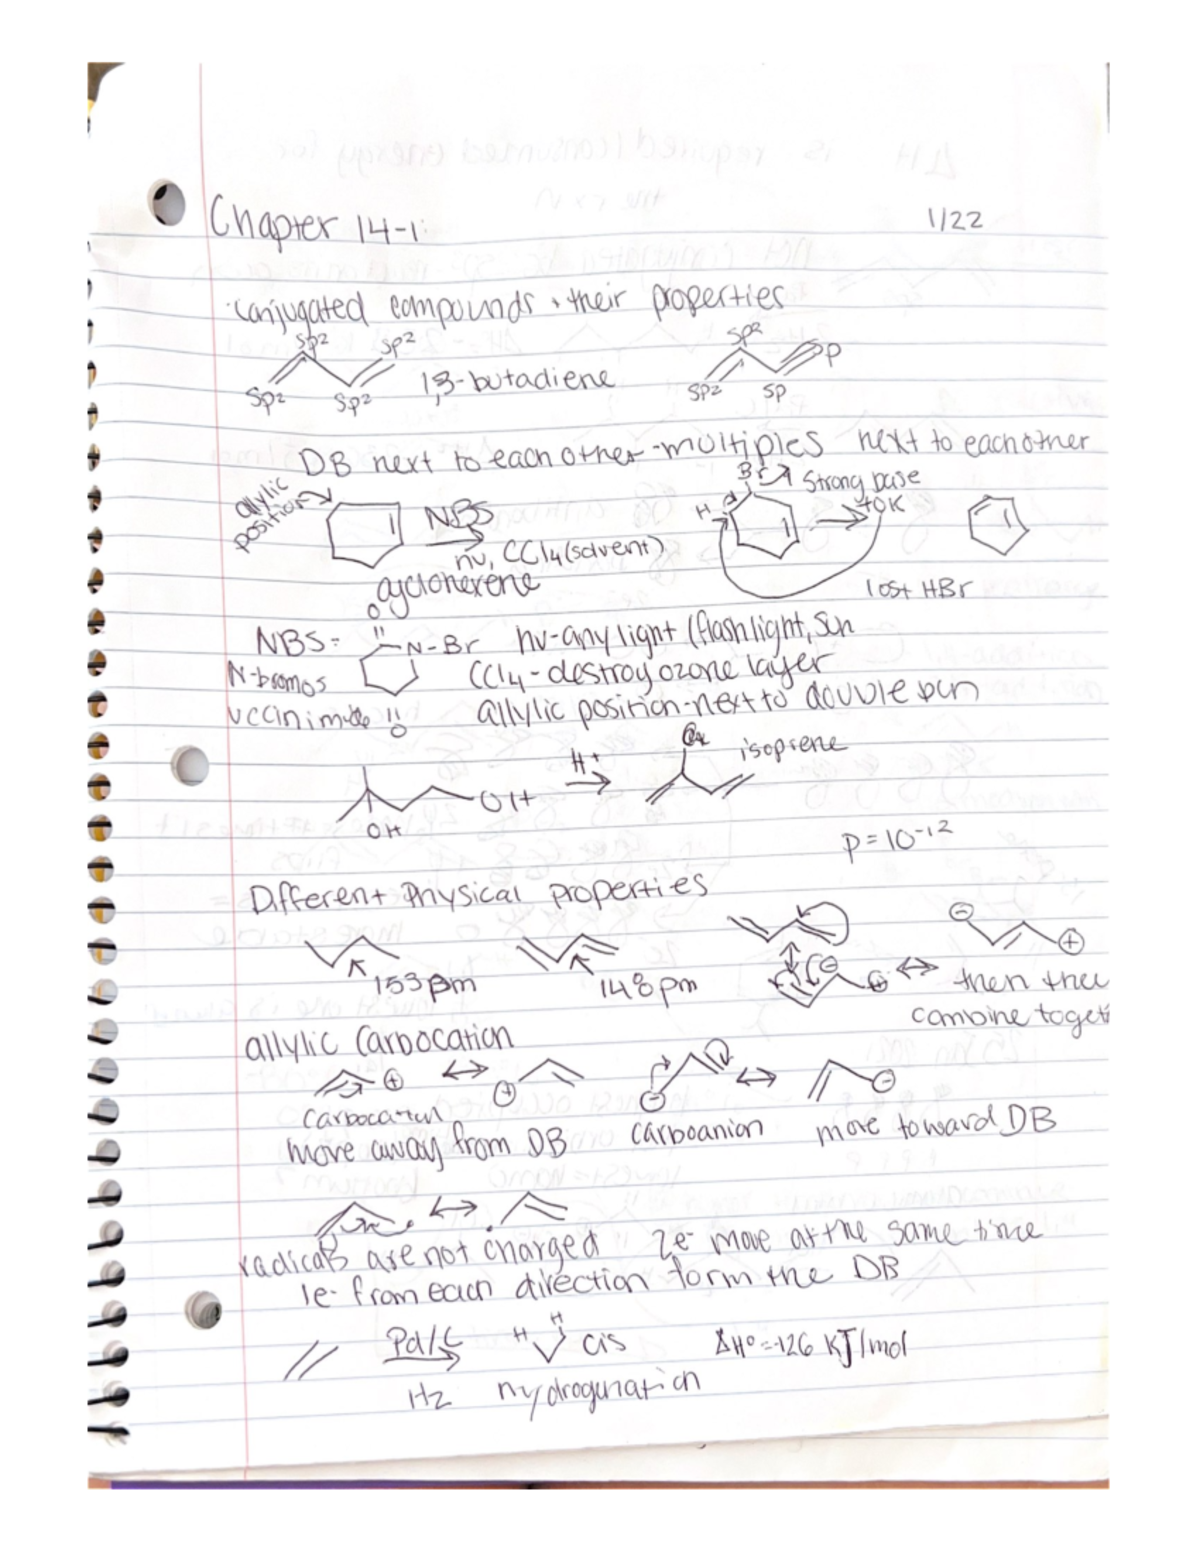 Chapter 14-1 1/22
·conjugated compounds + their properties
sp2 sp2 sp2
sp2 sp2 1,3-butadiene sp2 sp sp
DB next to each other-multiples next to each other
allylic position NBS Br Strong base
H tOK
hν, CCl4(solvent)
cyclohexene lost HBr
O
NBS= N-Br hν-any light (flashlight, Sun
N-bromos CCl4-destroy ozone layer
uccinimide O allylic position-next to double bun
isoprene
H+
OH
OH
P=10-12
Different Physical properties
153pm 148pm then
combine toget
allylic Carbocation
carbocation
move away from DB carboanion move toward DB
radicals are not charged 2e- move at the same time
1e- from each direction form the DB
Pd/C H H cis ΔH°=-126 KJ/mol
H2 hydrogunation